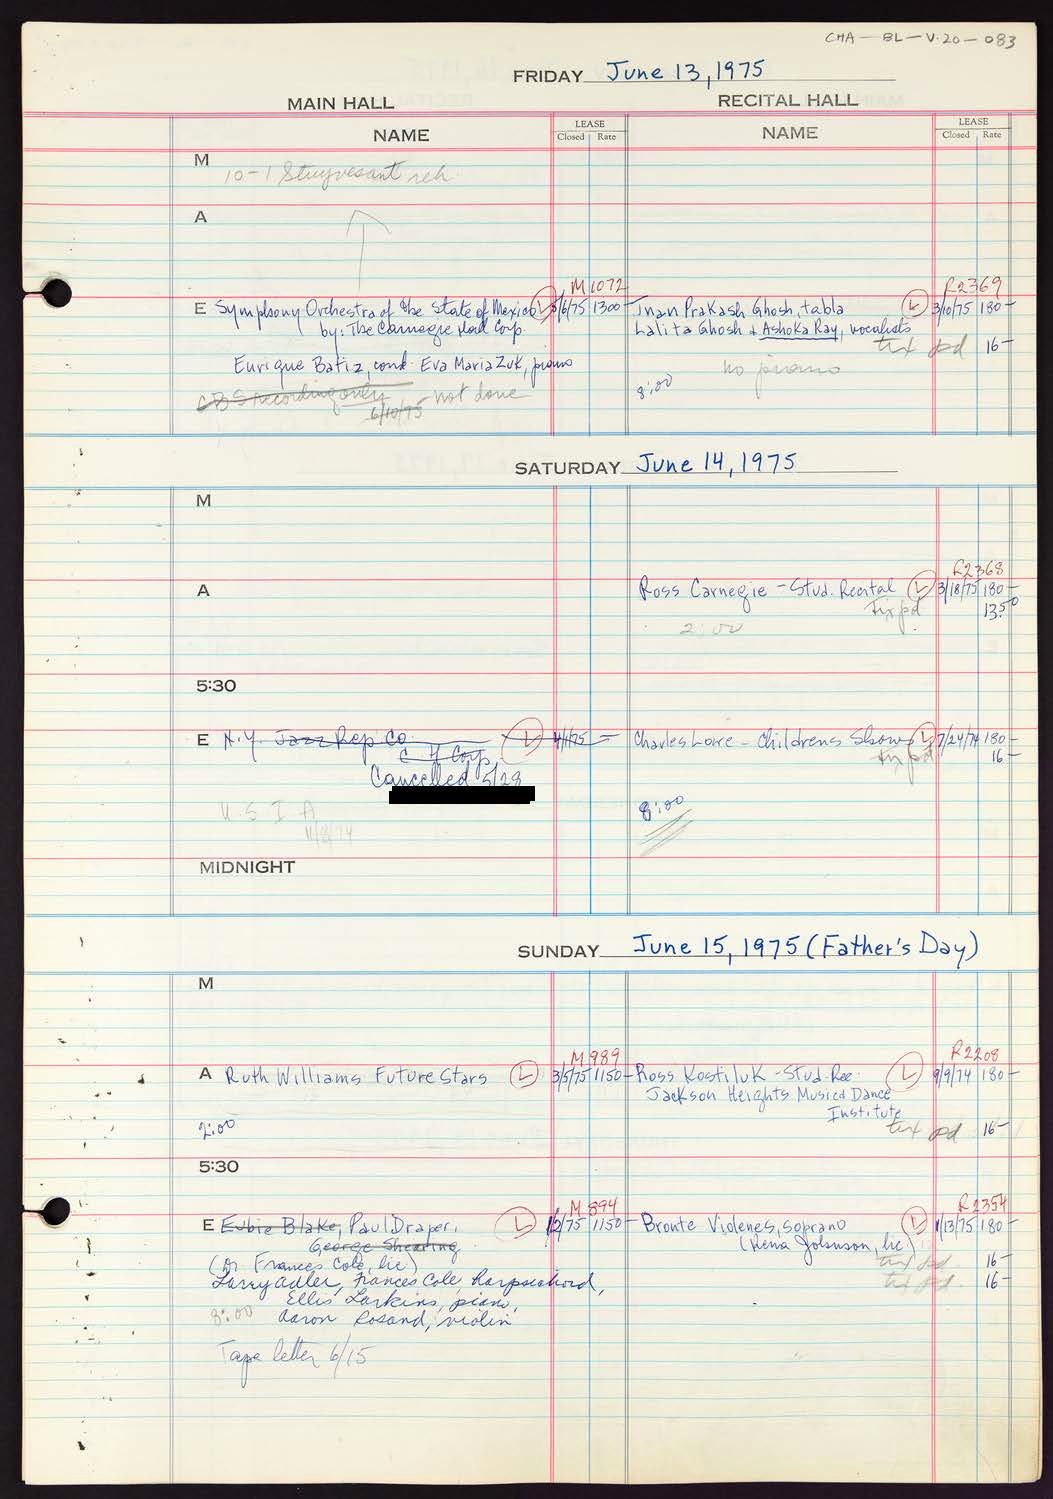 CMA - BL - V.20 - 083
FRIDAY June 13, 1975
MAIN HALL
RECITAL HALL
NAME
LEASE
Closed Rate
NAME
LEASE
Closed Rate
M
10-1 Stuyvesant reh.
A
M1072
R2369
E Symphony Orchestra of the State of Mexico L 5/6/75 1300-
by: The Carnegie Hall Corp.
Enrique Batiz, cond. Eva Maria Zuk, piano
CBS recording only - not done
6/10/75
Jnan Prakash Ghosh, tabla L 3/10/75 180-
Lalita Ghosh & Ashoka Ray, vocalists
tix pd 16-
no piano
8:00
SATURDAY June 14, 1975
M
R2368
A
Ross Carnegie - Stud. Recital L 3/18/75 180-
Tix pd 13.50
2:00
5:30
E N.Y. Jazz Rep Co. L 4/1/75 -
C H Corp.
Cancelled 5/28
U.S I A
11/8/74
Charles Lowe - Childrens Show L 7/24/74 180-
tix pd 16-
8:00
MIDNIGHT
SUNDAY June 15, 1975 (Father's Day)
M
M989
R2208
A Ruth Williams Future Stars L 3/5/75 1150-
2:00
Ross Kostiluk - Stud. Rec. L 9/9/74 180-
Jackson Heights Music & Dance
Institute
tix pd 16-
5:30
M894
R2354
E Eubie Blake, Paul Draper, L 1/2/75 1150-
George Shearing
(Dr Frances Cole, lic)
Larry Adler, Frances Cole harpsichord,
Ellis Larkins, piano,
8:00 Aaron Rosand, violin
Tape letter 6/15
Bronte Violenes, soprano L 1/13/75 180-
(Rena Johnson, lic)
tix pd. 16-
tix pd. 16-